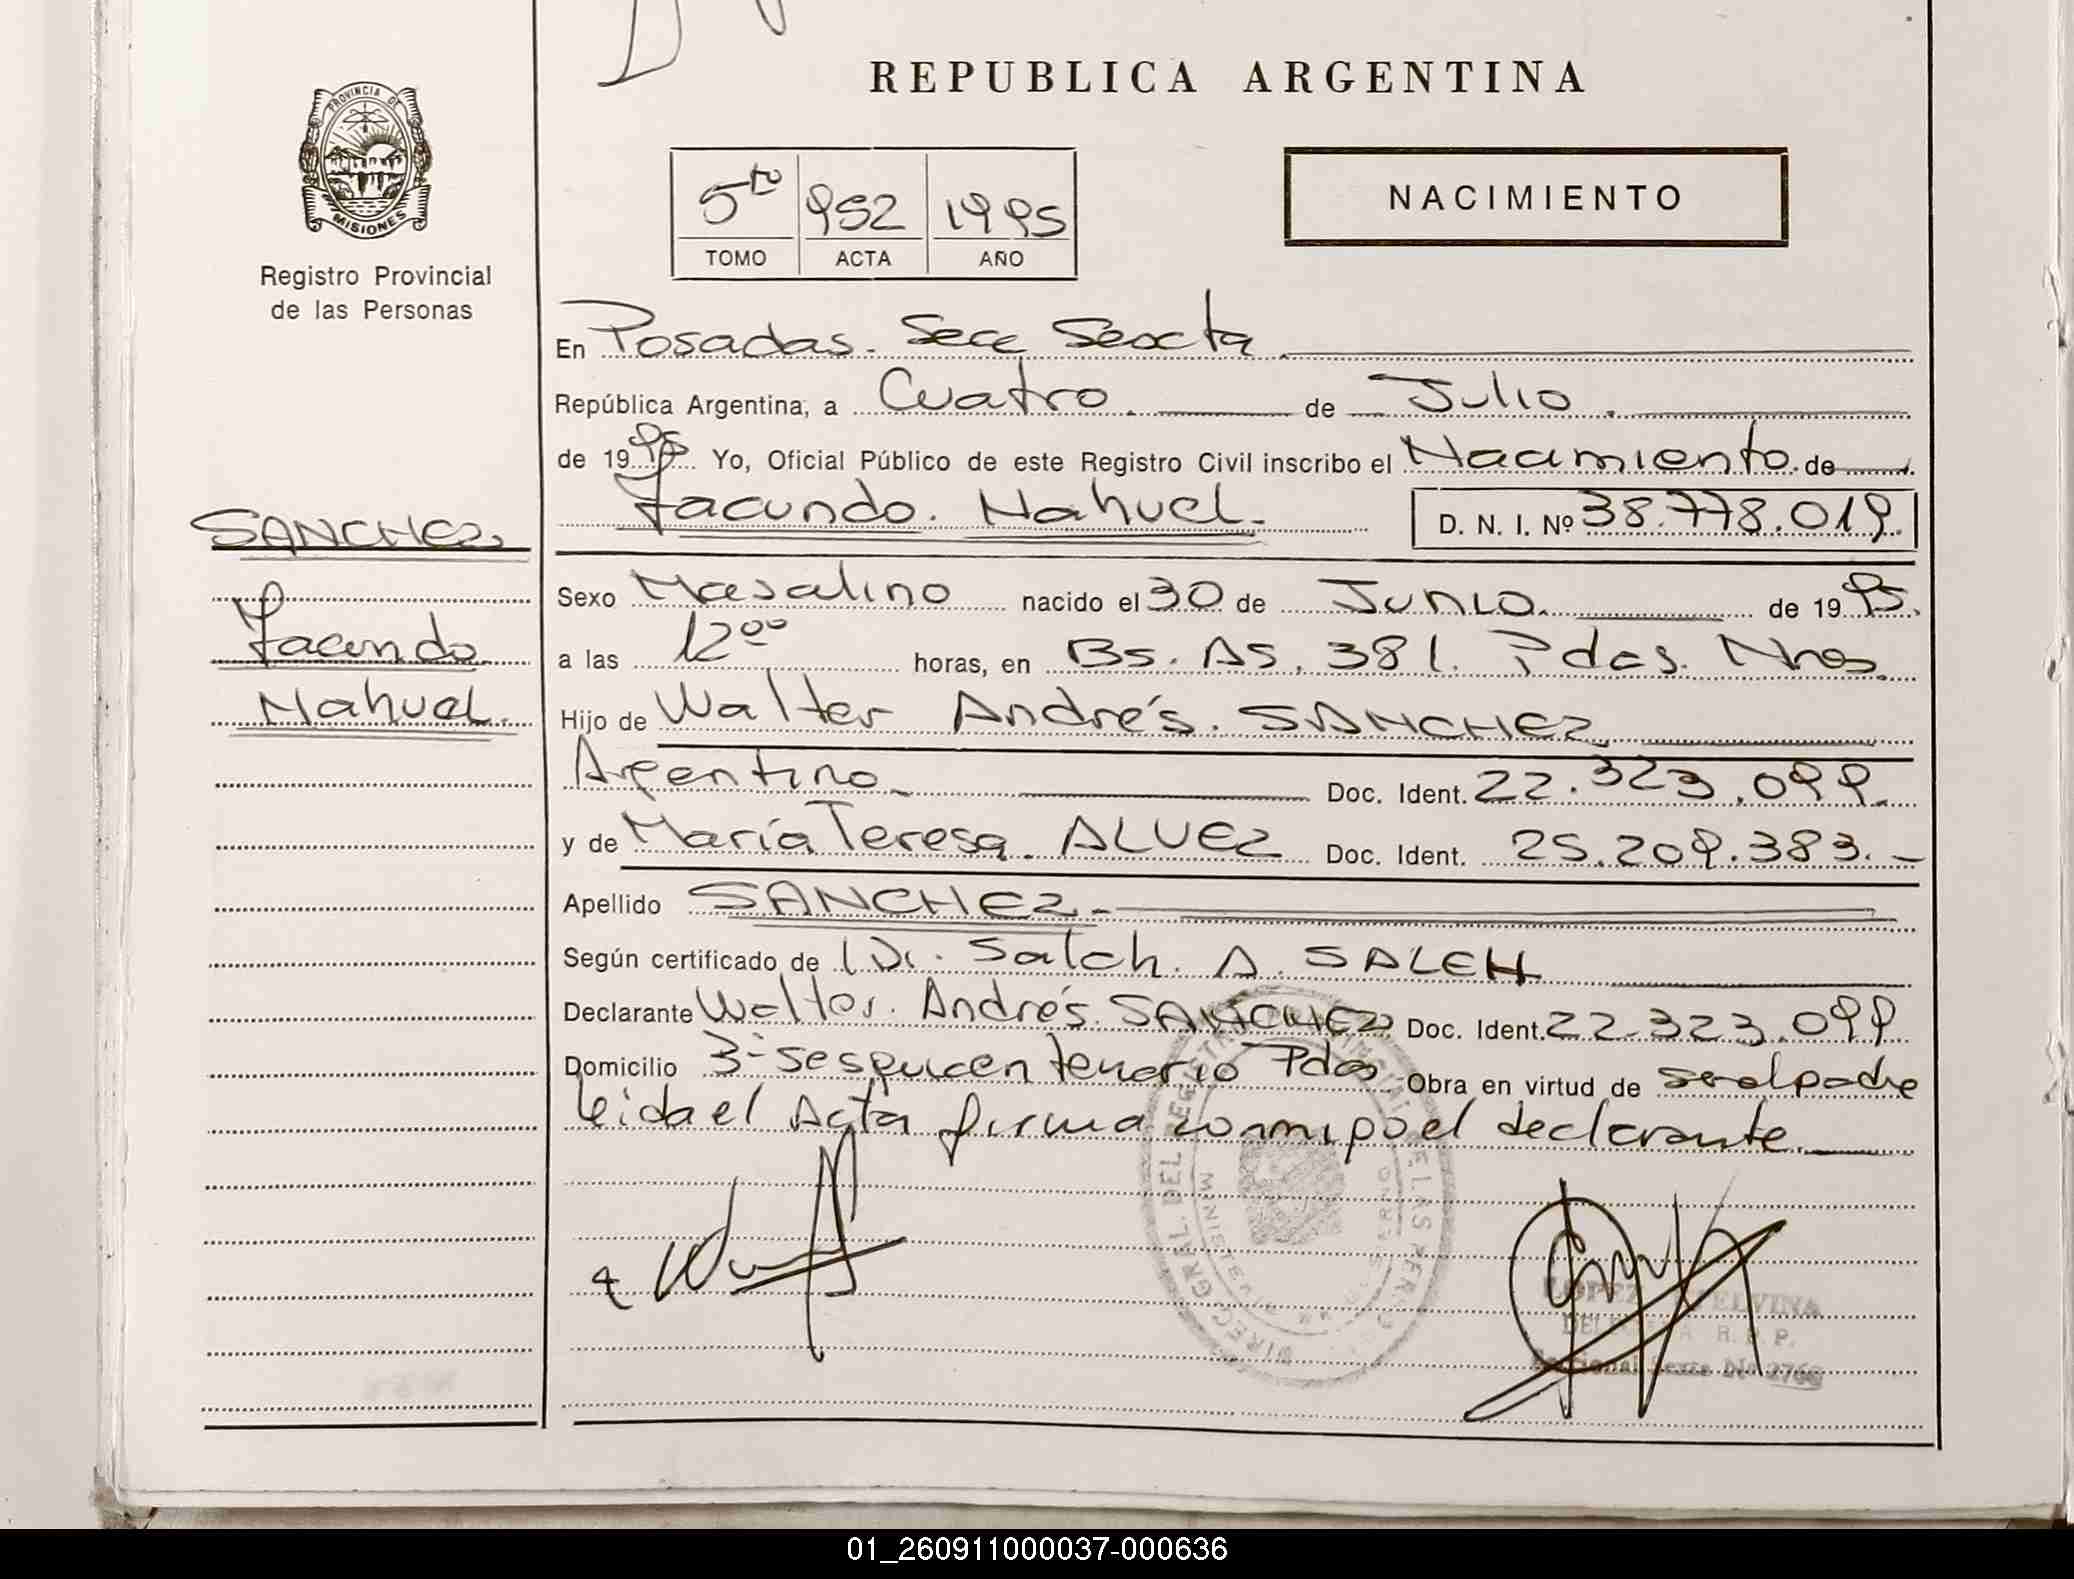 REPUBLICA ARGENTINA
PROVINCIA DE
MISIONES
Registro Provincial
de las Personas
5to 952 1995
TOMO ACTA AÑO
NACIMIENTO
En Posadas. Secc Sexcta
República Argentina, a Cuatro. de Julio.
de 1995 Yo, Oficial Público de este Registro Civil inscribo el Nacimiento. de
Facundo. Nahuel. D. N. I. Nº 38.778.019.
SANCHEZ
Facundo
Nahuel.
Sexo Masculino nacido el 30 de Junio. de 1995.
a las 12⁰⁰ horas, en Bs. As. 381. Pdas. Mnes.
Hijo de Walter Andrés. SANCHEZ
Argentino Doc. Ident. 22.323.099.
y de María Teresa. ALVEZ Doc. Ident. 25.209.383.-
Apellido SANCHEZ.-
Según certificado de Dr. Saleh. A. SALEH
Declarante Walter. Andrés. SANCHEZ Doc. Ident. 22.323.099
Domicilio Pdas Obra en virtud de ser el padre
leida el Acta firma conmigo el declarante.
DIREC. GRAL. DEL REGISTRO PROVINCIAL DE LAS PERSONAS
MISIONES
LOPEZ ELVINA
DELEGADA R. P. P.
Seccional Sexta
01_260911000037-000636